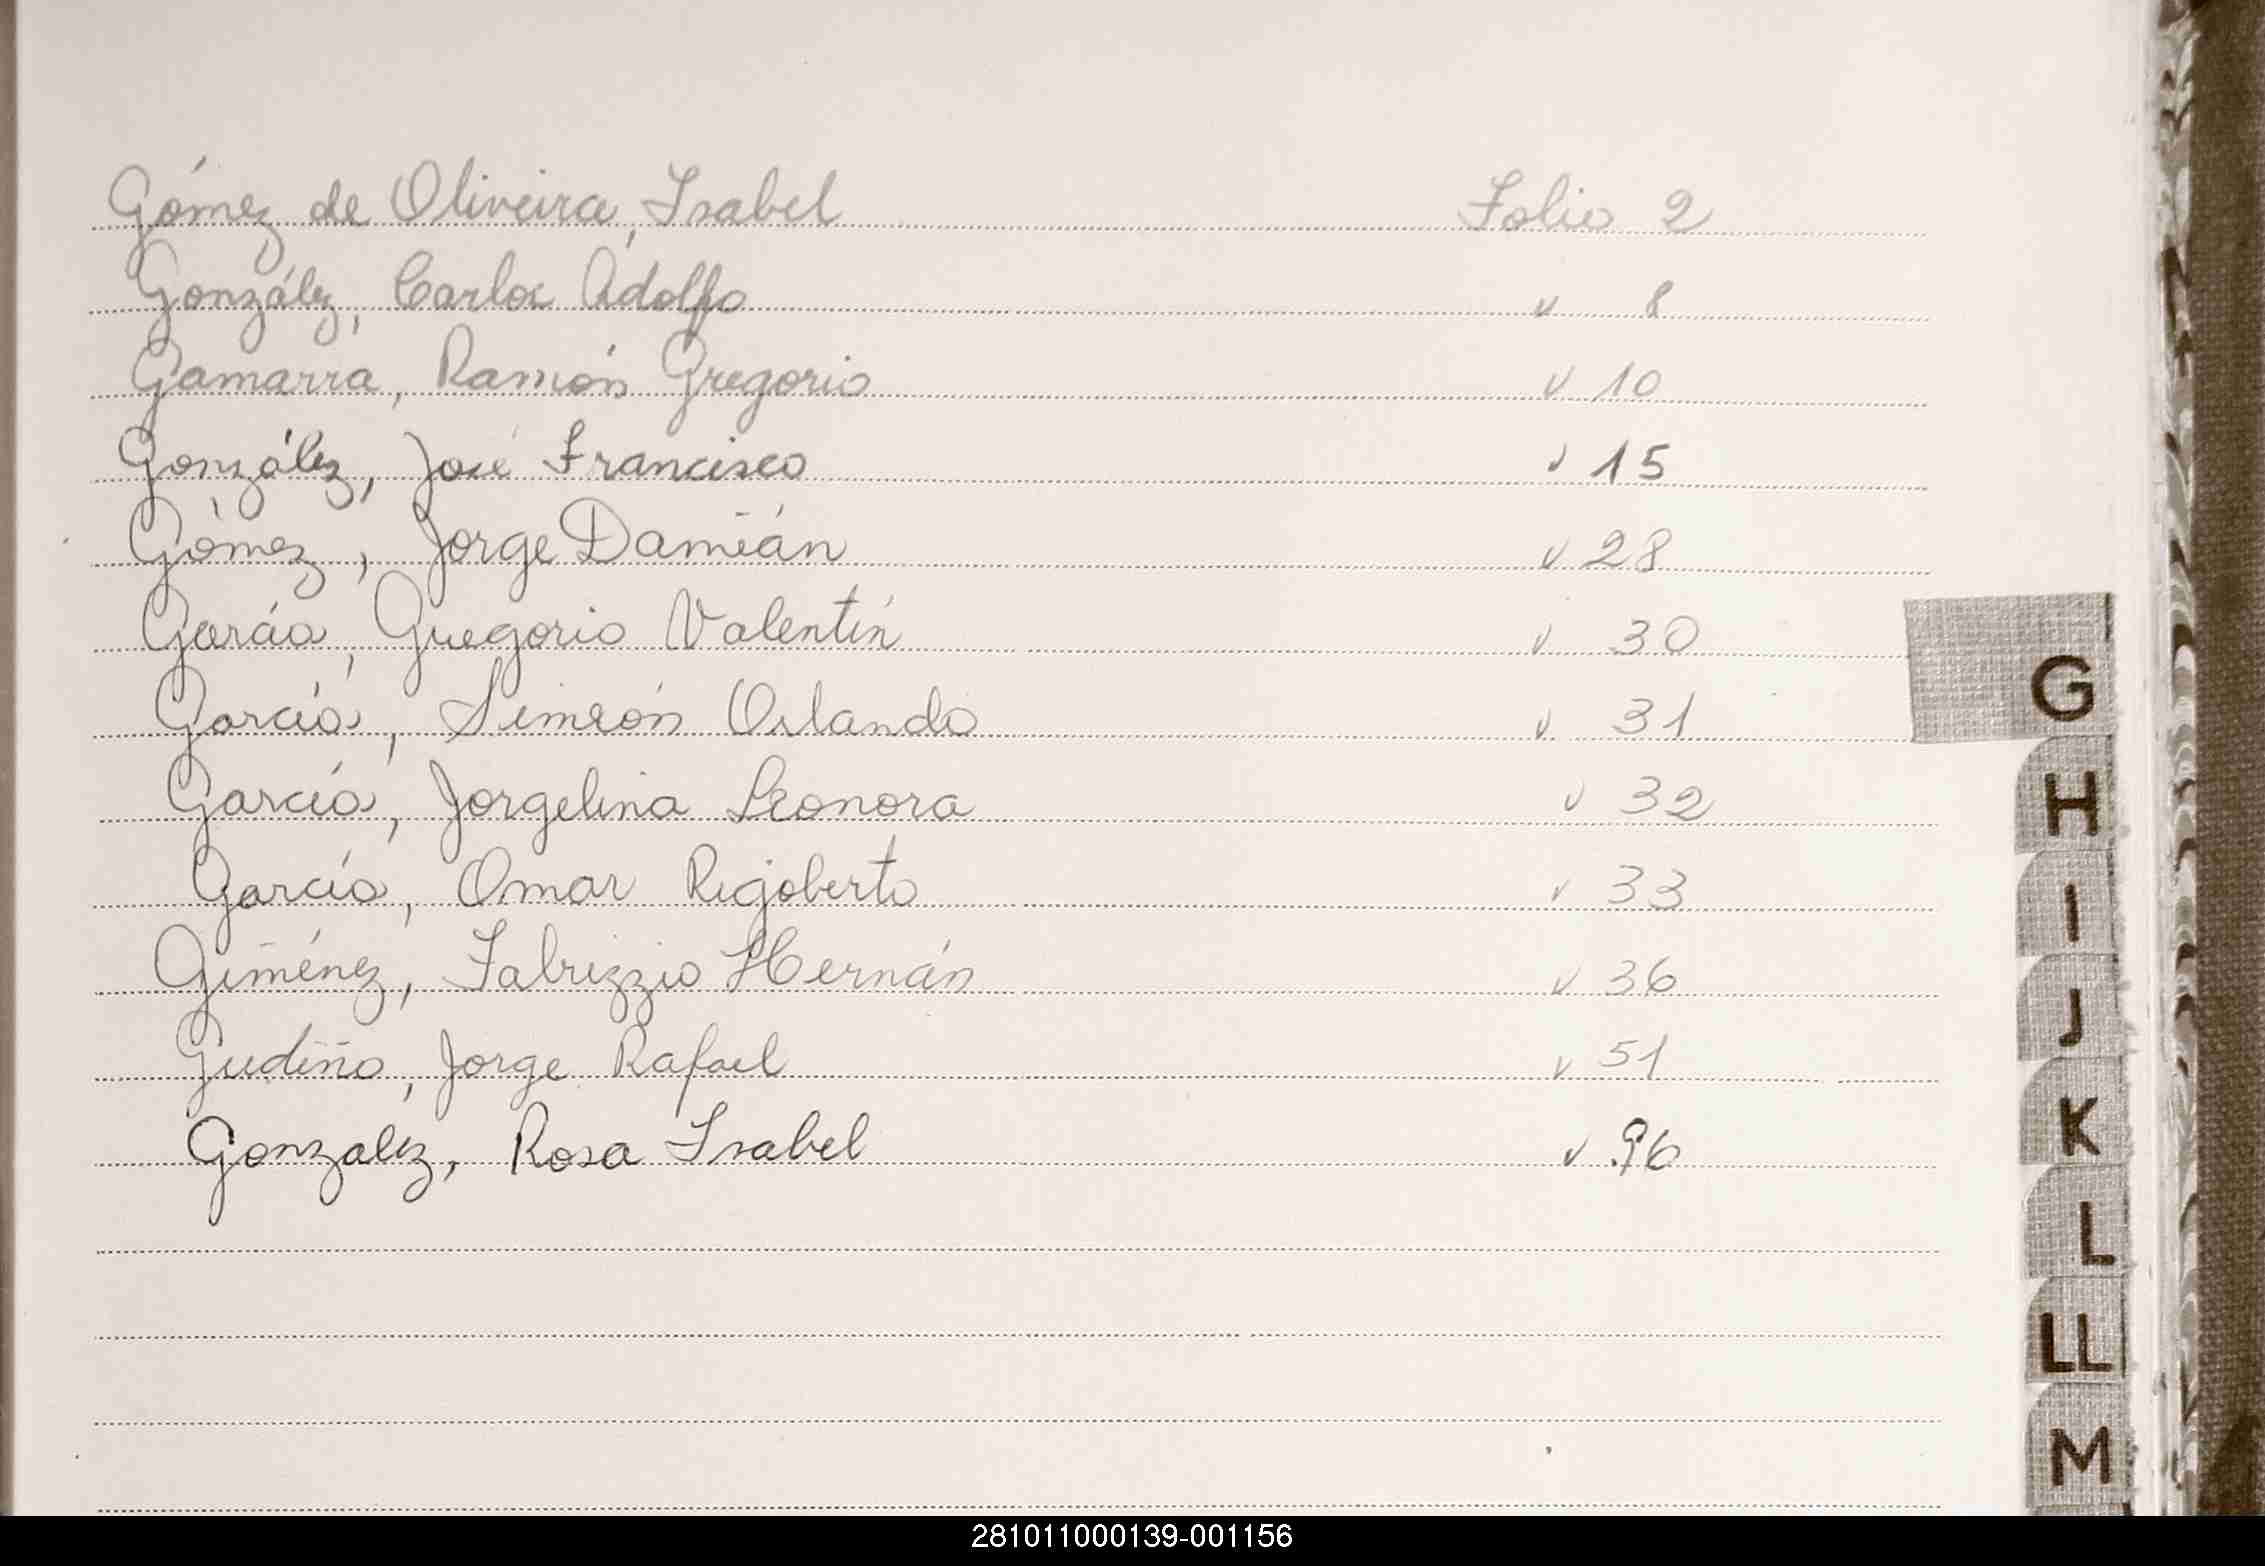 Gómez de Oliveira, Isabel Folio 2
González, Carlos Adolfo " 8
Gamarra, Ramón Gregorio " 10
González, José Francisco " 15
Gómez, Jorge Damián " 28
García, Gregorio Valentín " 30
García, Simeón Orlando " 31
García, Jorgelina Leonora " 32
García, Omar Rigoberto " 33
Giménez, Fabrizzio Hernán " 36
Gudiño, Jorge Rafael " 51
Gonzalez, Rosa Isabel " 96
G
H
I
J
K
L
LL
M
281011000139-001156